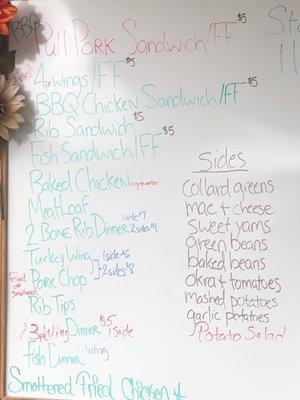 BBQ
Pull Pork Sandwich/FF $5
Fried 4 wings/FF $5
BBQ Chicken Sandwich/FF $5
Rib Sandwich $5
Fish Sandwich/FF $5
Baked Chicken leg quarter
MeatLoaf
2 Bone Rib Dinner 1side $7 2side $9
Turkey Wing
Pork Chop
1side $6
2sides $8
Fried or smothered
Rib Tips
3pc Wing Dinner $5 1side
Fish Dinner Whiting
Smothered Fried Chicken
Sides
collard greens
mac + cheese
sweet yams
green beans
baked beans
okra + tomatoes
mashed potatoes
garlic potatoes
Potato Salad